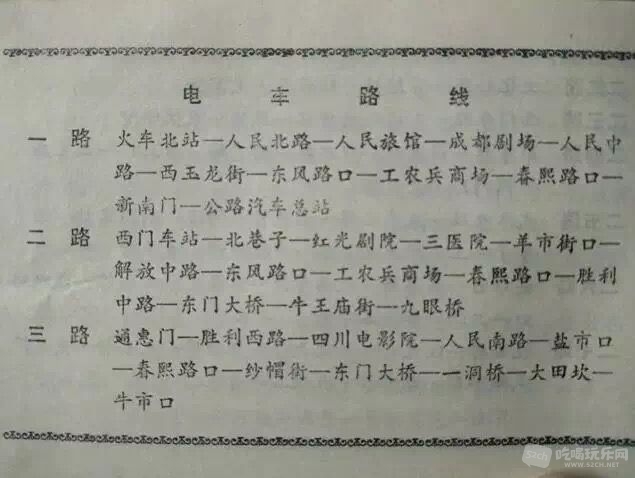 电车路线
一路 火车北站—人民北路—人民旅馆—成都剧场—人民中
路—西玉龙街—东风路口—工农兵商场—春熙路口—
新南门—公路汽车总站
二路 西门车站—北巷子—红光剧院—三医院—羊市街口—
解放中路—东风路口—工农兵商场—春熙路口—胜利
中路—东门大桥—牛王庙街—九眼桥
三路 通惠门—胜利西路—四川电影院—人民南路—盐市口
—春熙路口—纱帽街—东门大桥—一洞桥—大田坎—
牛市口
吃喝玩乐网
WWW.62CH.NET